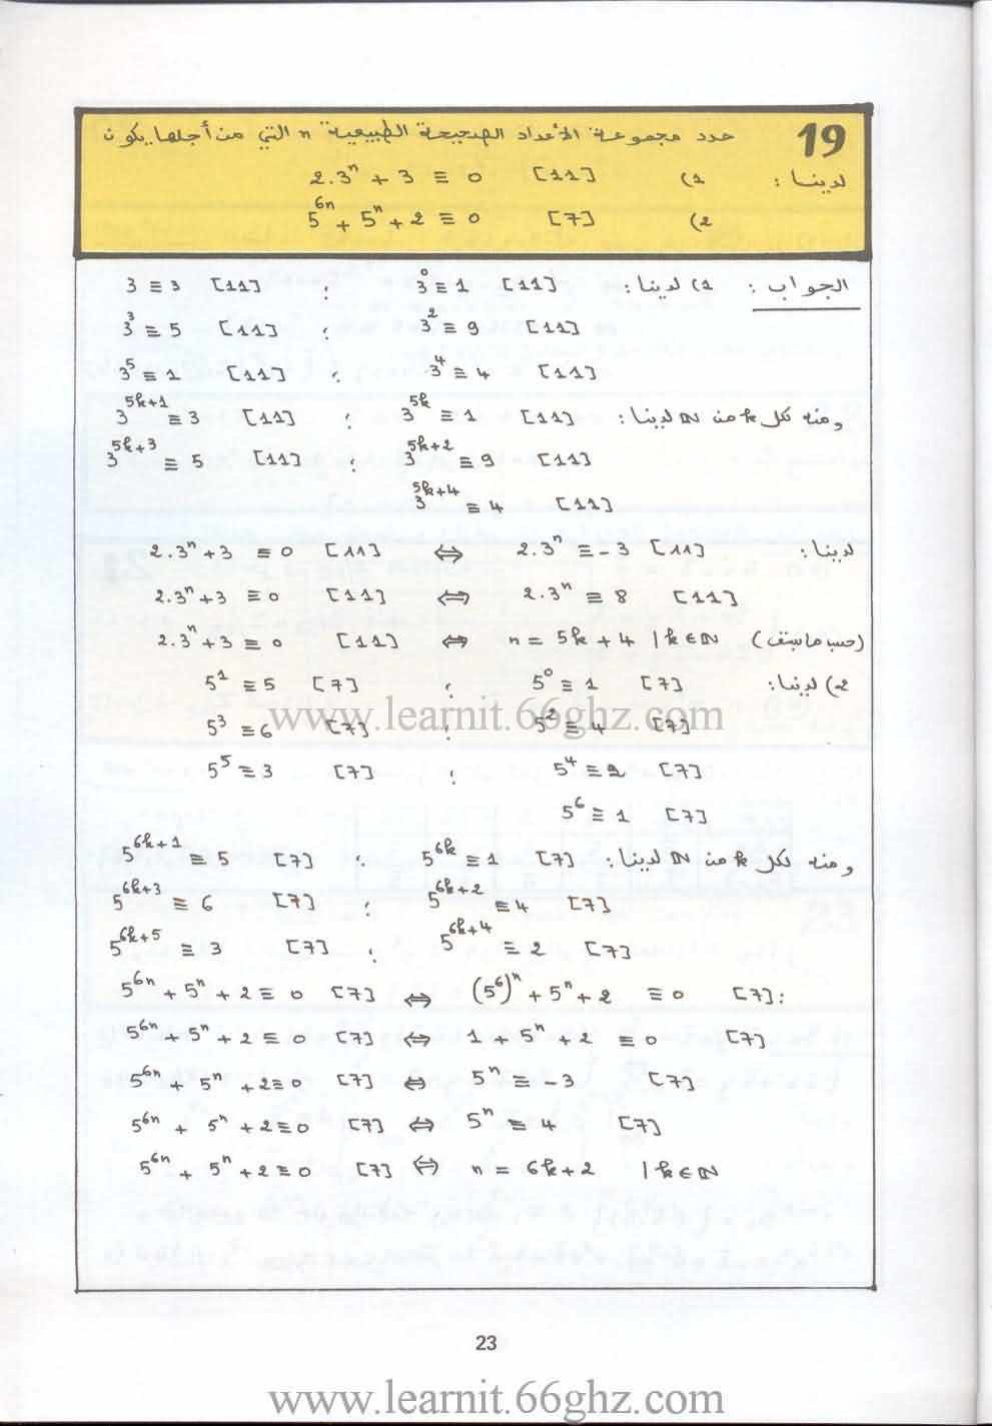 19 حدد مجموعة الأعداد الصحيحة الطبيعية n التي من أجلها يكون
لدينا : (1 2.3ⁿ + 3 ≡ 0 [11]
(2 5⁶ⁿ + 5ⁿ + 2 ≡ 0 [7]
الجواب : (1 لدينا : 3⁰ ≡ 1 [11] ; 3 ≡ 3 [11]
3² ≡ 9 [11] ; 3³ ≡ 5 [11]
3⁴ ≡ 4 [11] ; 3⁵ ≡ 1 [11]
ومنه لكل k من ℕ لدينا : 3⁵ᵏ ≡ 1 [11] ; 3⁵ᵏ⁺¹ ≡ 3 [11]
3⁵ᵏ⁺² ≡ 9 [11] ; 3⁵ᵏ⁺³ ≡ 5 [11]
3⁵ᵏ⁺⁴ ≡ 4 [11]
لدينا : 2.3ⁿ + 3 ≡ 0 [11] ⇔ 2.3ⁿ ≡ -3 [11]
2.3ⁿ + 3 ≡ 0 [11] ⇔ 2.3ⁿ ≡ 8 [11]
2.3ⁿ + 3 ≡ 0 [11] ⇔ n = 5k + 4 | k ∈ ℕ (حسب ما سبق)
(2 لدينا : 5⁰ ≡ 1 [7] ; 5¹ ≡ 5 [7]
www.learnit.66ghz.com
5² ≡ 4 [7] ; 5³ ≡ 6 [7]
5⁴ ≡ 2 [7] ; 5⁵ ≡ 3 [7]
5⁶ ≡ 1 [7]
ومنه لكل k من ℕ لدينا : 5⁶ᵏ ≡ 1 [7] ; 5⁶ᵏ⁺¹ ≡ 5 [7]
5⁶ᵏ⁺² ≡ 4 [7] ; 5⁶ᵏ⁺³ ≡ 6 [7]
5⁶ᵏ⁺⁴ ≡ 2 [7] ; 5⁶ᵏ⁺⁵ ≡ 3 [7]
5⁶ⁿ + 5ⁿ + 2 ≡ 0 [7] ⇔ (5⁶)ⁿ + 5ⁿ + 2 ≡ 0 [7] :
5⁶ⁿ + 5ⁿ + 2 ≡ 0 [7] ⇔ 1 + 5ⁿ + 2 ≡ 0 [7]
5⁶ⁿ + 5ⁿ + 2 ≡ 0 [7] ⇔ 5ⁿ ≡ -3 [7]
5⁶ⁿ + 5ⁿ + 2 ≡ 0 [7] ⇔ 5ⁿ ≡ 4 [7]
5⁶ⁿ + 5ⁿ + 2 ≡ 0 [7] ⇔ n = 6k + 2 | k ∈ ℕ
23
www.learnit.66ghz.com